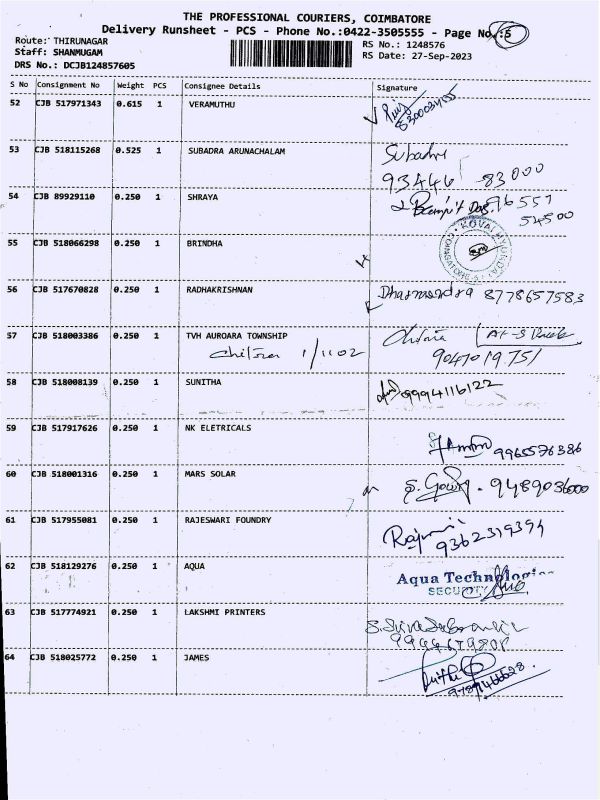 THE PROFESSIONAL COURIERS, COIMBATORE
Delivery Runsheet - PCS - Phone No.:0422-3505555 - Page No.:5
Route: THIRUNAGAR
RS No.: 1248576
Staff: SHANMUGAM
RS Date: 27-Sep-2023
DRS No.: DCJB124857605
S No Consignment No Weight PCS Consignee Details Signature
52 CJB 517971343 0.615 1 VERAMUTHU
53 CJB 518115268 0.525 1 SUBADRA ARUNACHALAM Subadra
93446 83000
54 CJB 89929110 0.250 1 SHRAYA
54500
55 CJB 518066298 0.250 1 BRINDHA
56 CJB 517670828 0.250 1 RADHAKRISHNAN Dharmendra 8778657583
57 CJB 518003386 0.250 1 TVH AUROARA TOWNSHIP
Chitra 1/1102
9047019751
58 CJB 518008139 0.250 1 SUNITHA 9994116122
59 CJB 517917626 0.250 1 NK ELETRICALS
9965576386
60 CJB 518001316 0.250 1 MARS SOLAR 9489036000
61 CJB 517955081 0.250 1 RAJESWARI FOUNDRY
9362319394
62 CJB 518129276 0.250 1 AQUA
Aqua Technologies
SECURITY
63 CJB 517774921 0.250 1 LAKSHMI PRINTERS
64 CJB 518025772 0.250 1 JAMES